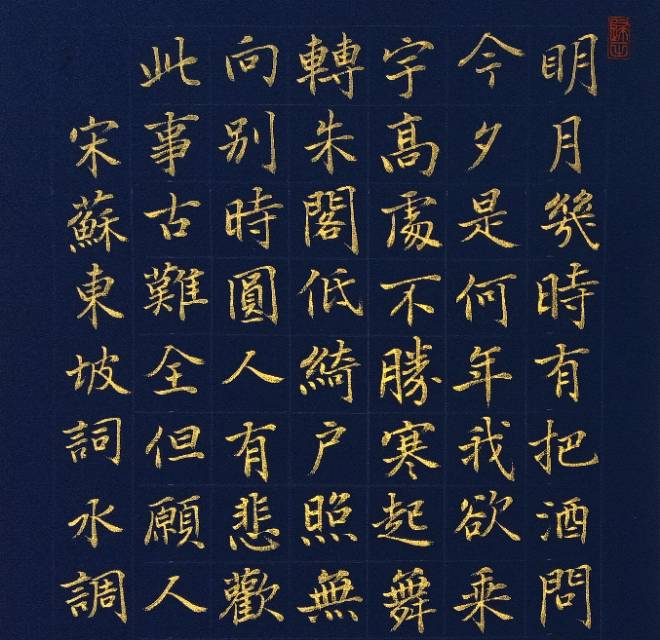 明月幾時有把酒問
今夕是何年我欲乘
宇高處不勝寒起舞
轉朱閣低綺戶照無
向別時圓人有悲歡
此事古難全但願人
宋蘇東坡詞水調